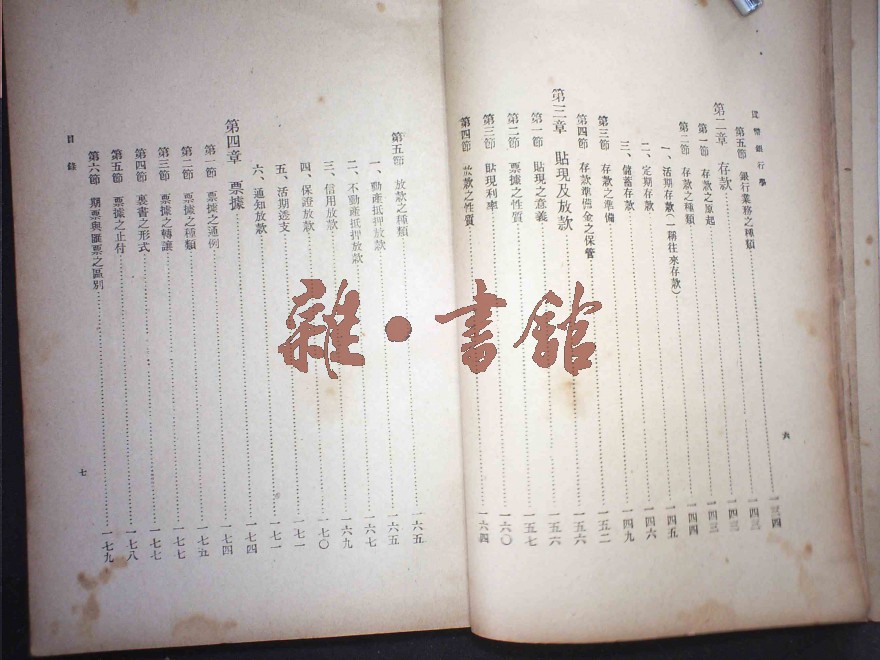 貨幣銀行學
第五節 銀行業務之種類……一三四
第二章 存款……一四三
第一節 存款之原起……一四三
第二節 存款之種類……一四三
一、活期存款(一稱往來存款)……一四四
二、定期存款……一四五
三、儲蓄存款……一四六
第三節 存款之準備……一四九
第四節 存款準備金之保管……一五二
第三章 貼現及放款……一五六
第一節 貼現之意義……一五六
第二節 票據之性質……一五七
第三節 貼現利率……一六〇
第四節 放款之性質……一六四
六
第五節 放款之種類……一六五
一、動產抵押放款……一六五
二、不動產抵押放款……一六七
三、信用放款……一六九
四、保證放款……一七〇
五、活期透支……一七一
六、通知放款……一七一
第四章 票據……一七四
第一節 票據之通例……一七四
第二節 票據之種類……一七五
第三節 票據之轉讓……一七七
第四節 裏書之形式……一七七
第五節 票據之止付……一七八
第六節 期票與匯票之區別……一七九
目錄
七
雜•書館